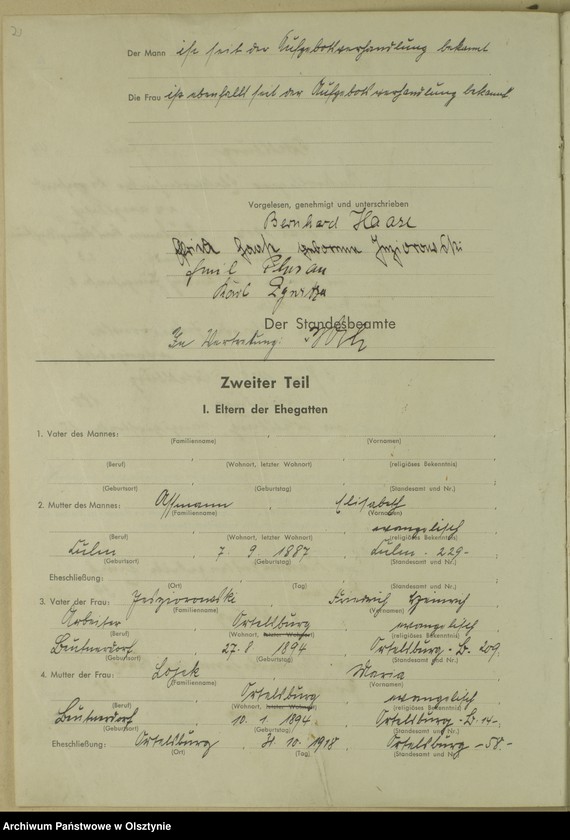 Der Mann ist seit der Aufgebotsverhandlung bekannt
Die Frau ist ebenfalls seit der Aufgebotsverhandlung bekannt
Vorgelesen, genehmigt und unterschrieben
Bernhard Haase
Haase geborene
Emil
Karl
Der Standesbeamte
In Vertretung:
Zweiter Teil
I. Eltern der Ehegatten
1. Vater des Mannes:
(Familienname) (Vornamen)
(Beruf) (Wohnort, letzter Wohnort) (religiöses Bekenntnis)
(Geburtsort) (Geburtstag) (Standesamt und Nr.)
2. Mutter des Mannes: Assmann Elisabeth
(Familienname) (Vornamen)
evangelisch
(Beruf) (Wohnort, letzter Wohnort) (religiöses Bekenntnis)
Culm 7. 9. 1887 Culm - 229-
(Geburtsort) (Geburtstag) (Standesamt und Nr.)
Eheschließung:
(Ort) (Tag) (Standesamt und Nr.)
3. Vater der Frau: Friedrich Heinrich
(Familienname) (Vornamen)
Arbeiter Ortelsburg evangelisch
(Beruf) (Wohnort, letzter Wohnort) (religiöses Bekenntnis)
Beutnerdorf 27. 8 1894 Ortelsburg - B. 209.
(Geburtsort) (Geburtstag) (Standesamt und Nr.)
4. Mutter der Frau: Lojek Maria
(Familienname) (Vornamen)
Ortelsburg evangelisch
(Beruf) (Wohnort, letzter Wohnort) (religiöses Bekenntnis)
Beutnerdorf 10. 1. 1894 Ortelsburg - B. 14-
(Geburtsort) (Geburtstag) (Standesamt und Nr.)
Eheschließung: Ortelsburg 31. 10. 1918 Ortelsburg - 58. -
(Ort) (Tag) (Standesamt und Nr.)
Archiwum Państwowe w Olsztynie